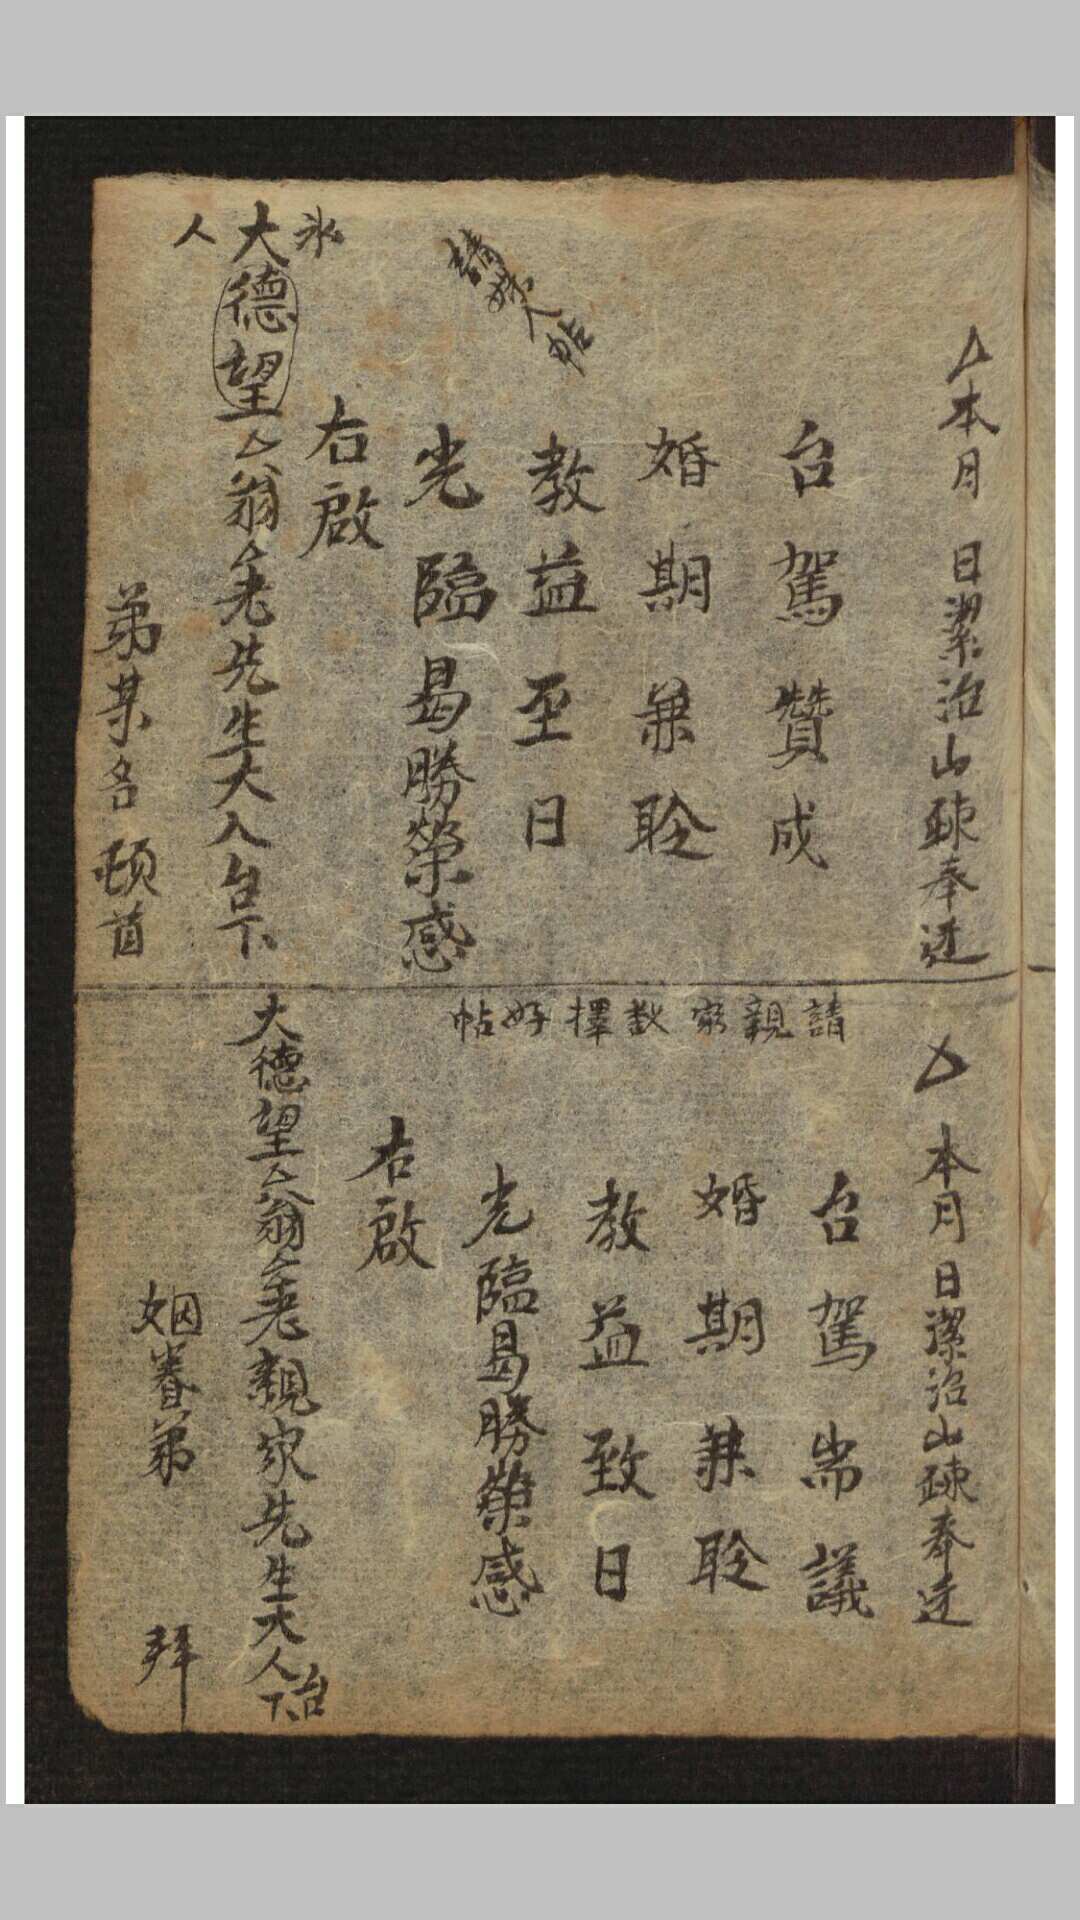 請媒人帖
△本月　日潔治山疎奉迓
台駕贊成
婚期兼聆
教益至日
光臨曷勝榮感
右啟
氷
大德望△翁△老先生大人台下
人
弟某名頓首
請親家敖擇好帖
△本月　日潔治山疎奉迓
台駕耑議
婚期兼聆
教益致日
光臨曷勝榮感
右啟
大德望△翁△老親家先生大人台下
姻眷弟　拜